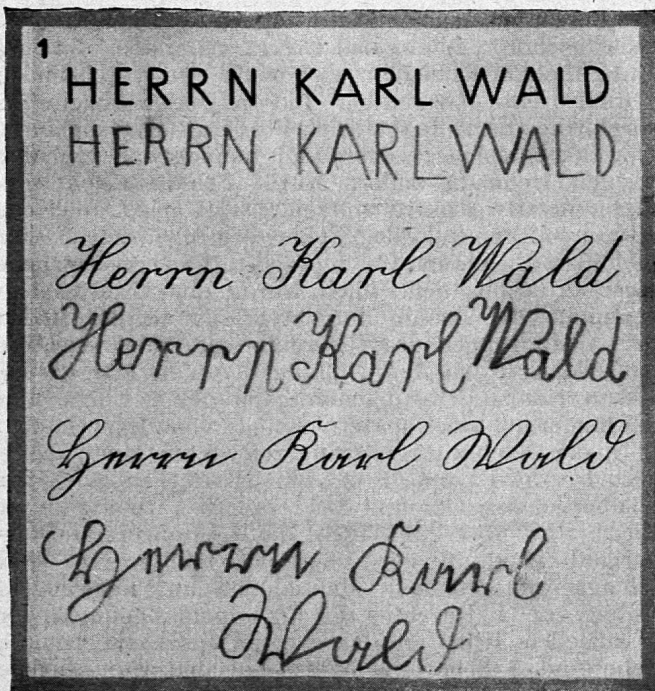 1
HERRN KARL WALD
HERRN KARL WALD
Herrn Karl Wald
Herrn Karl Wald
Herrn Karl Wald
Herrn Karl
Wald